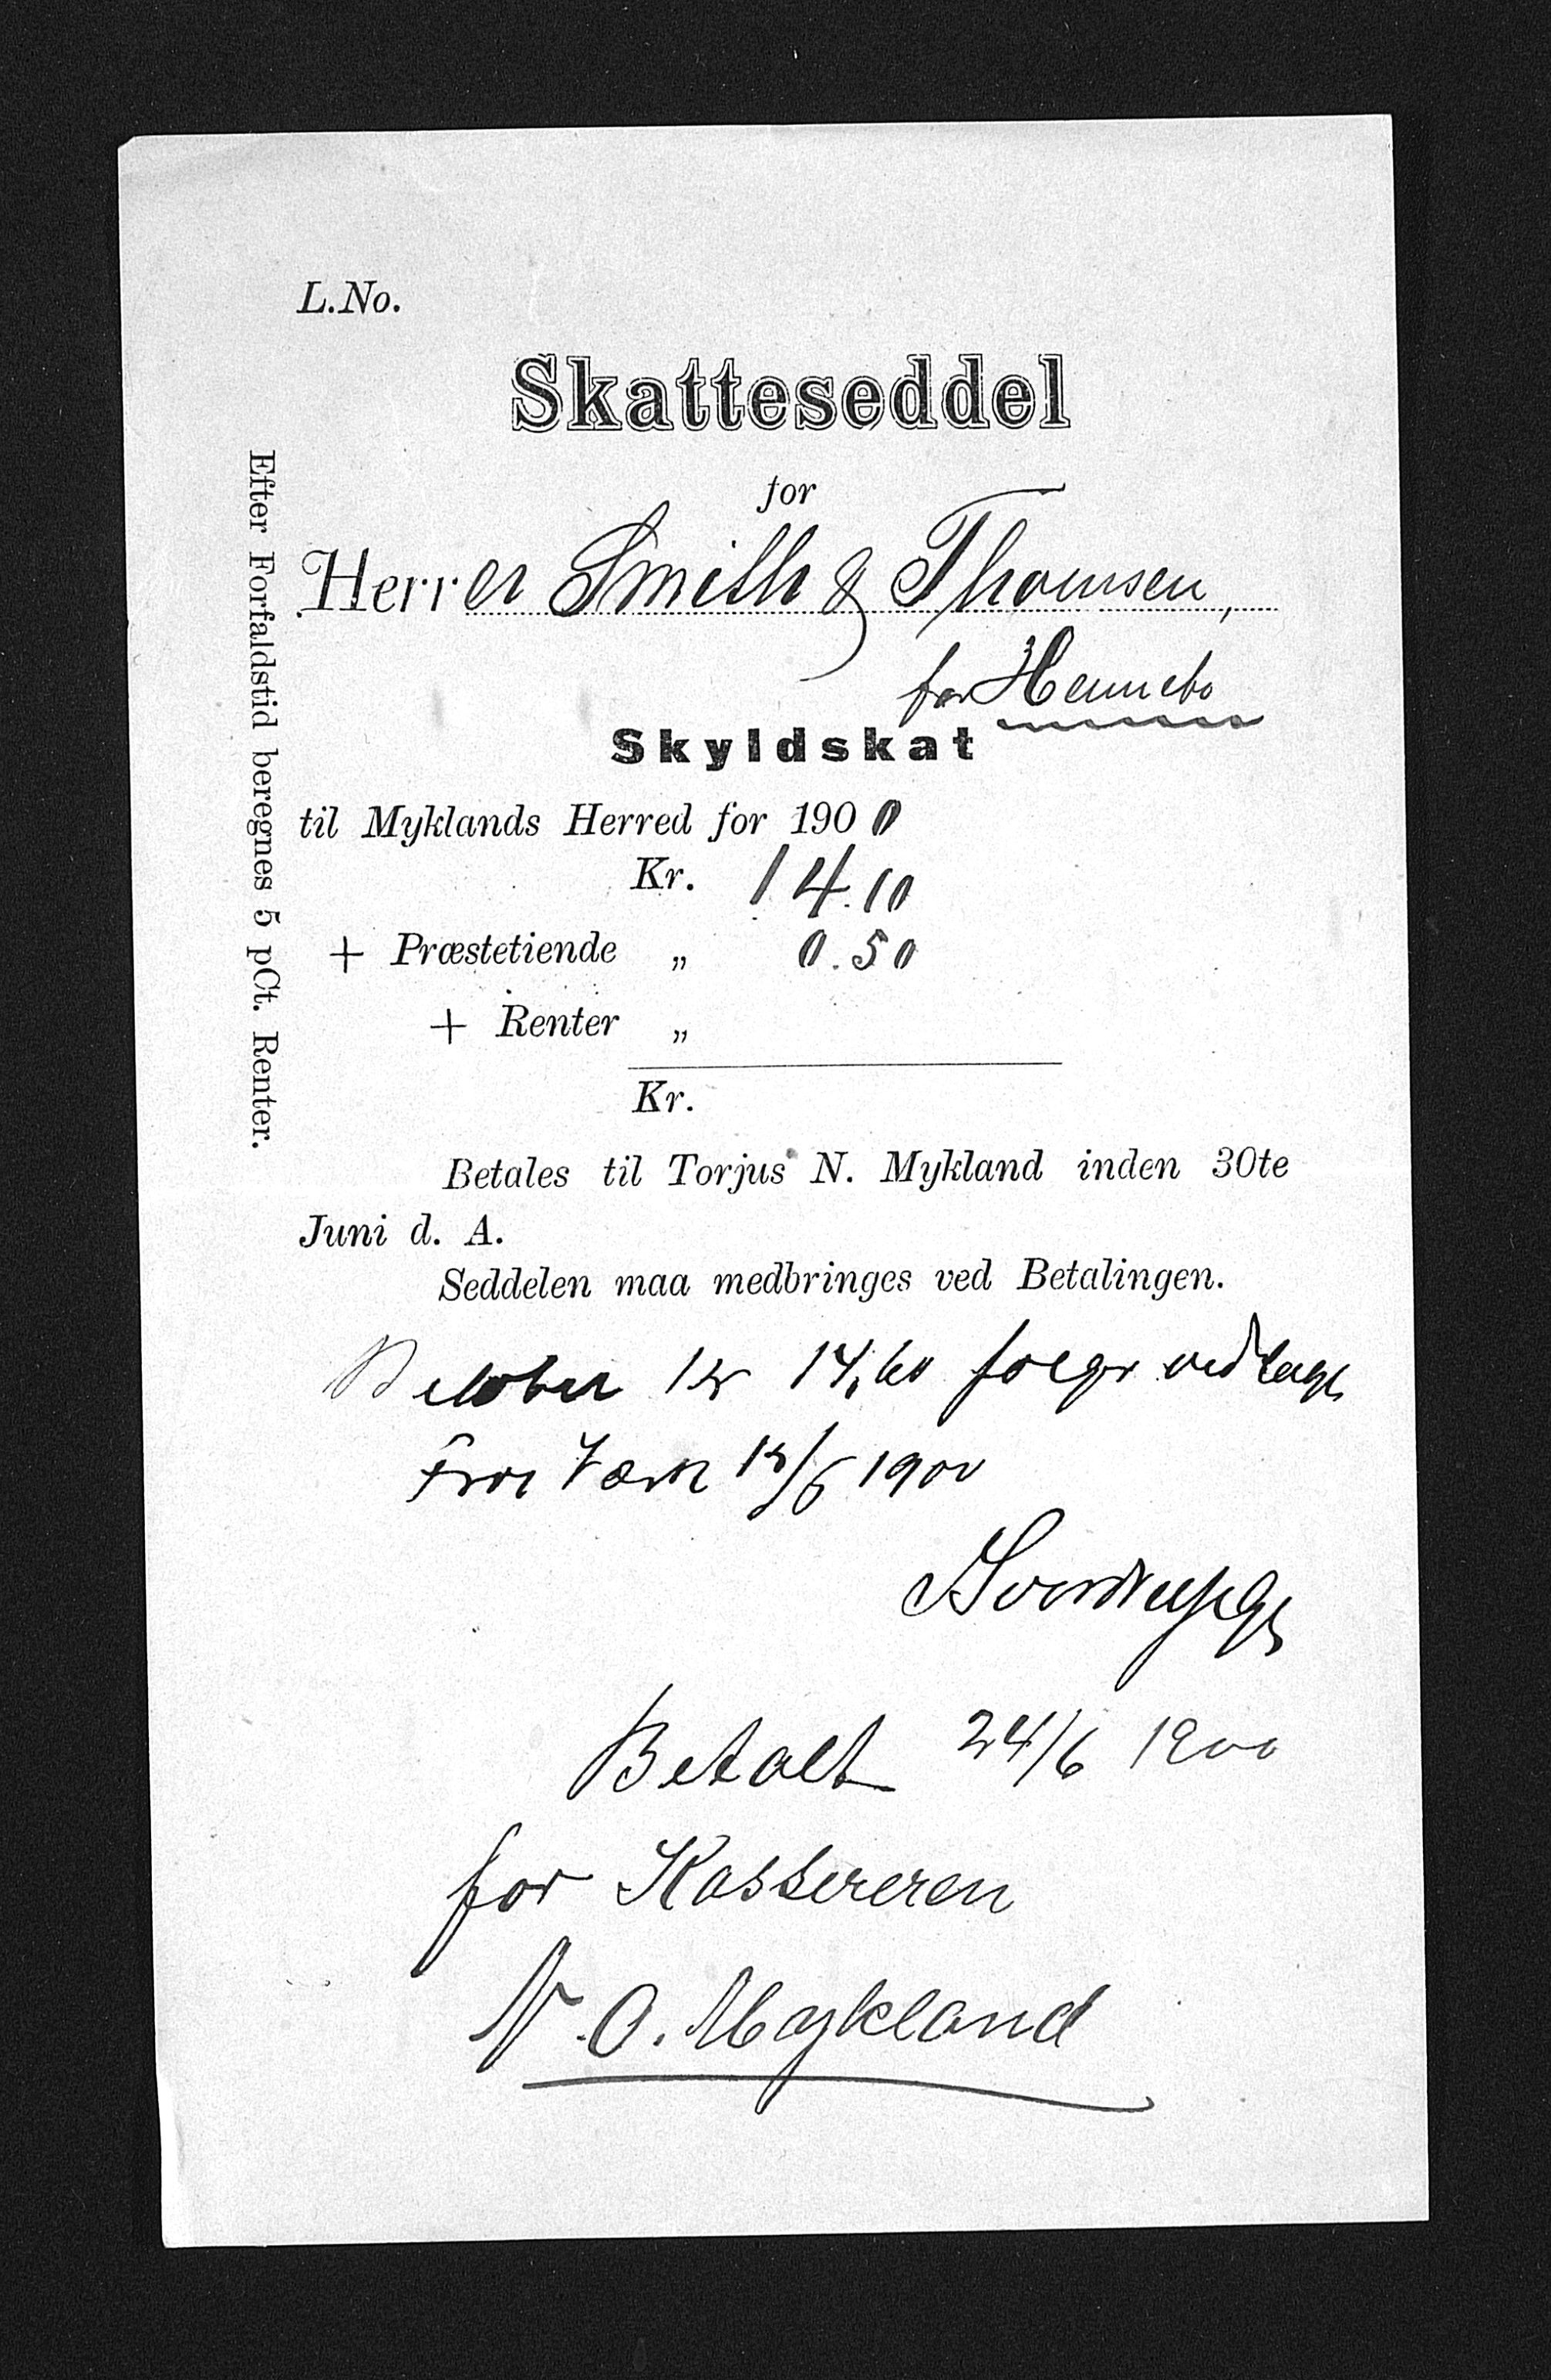 L.No.
Skatteseddel
for
Herrer Smith & Thomsen,
for Hennebo
Skyldskat
til Myklands Herred for 1900
Kr. 14.10
+ Præstetiende „ 0.50
+ Renter „
Kr.
Betales til Torjus N. Mykland inden 30te
Juni d. A.
Seddelen maa medbringes ved Betalingen.
Efter Forfaldstid beregnes 5 pCt. Renter.
Beløbet Kr 14,60 følger vedlagt
Værk 1900
Betalt 24/6 1900
for Kassereren
N. O. Mykland